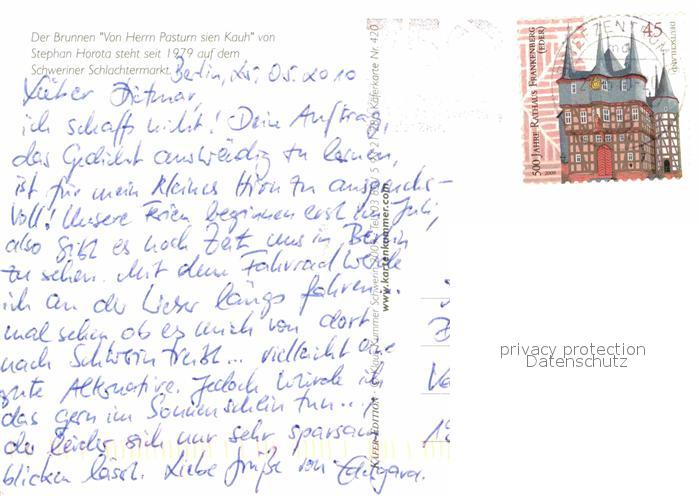 Der Brunnen "Von Herrn Pasturn sien Kauh" von
Stephan Horota steht seit 1979 auf dem
Schweriner Schlachtermarkt.
Berlin, 25.05.2010
Lieber Dietmar,
ich schaffs nicht! Dein Auftrag,
das Gedicht auswendig zu lernen,
ist für mein kleines Hirn zu anspruchs-
voll! Unsere Ferien beginnen erst im Juli,
also gibt es noch Zeit uns in Berlin
zu sehen. Mit dem Fahrrad würde
ich an der Weser längs fahren..
mal sehen ob es mich von dort
nach Schwerin treibt... vielleicht eine
gute Alternative. Jedoch würde ich
das gern im Sonnenschein tun...,
der leider sich nur sehr sparsam
blicken lässt. Liebe Grüße von
www.kartenkammer.com
Käfer-Edition
Käferkarte Nr. 420
500 JAHRE RATHAUS FRANKENBERG
(EDER)
45
DEUTSCHLAND
2009
privacy protection
Datenschutz